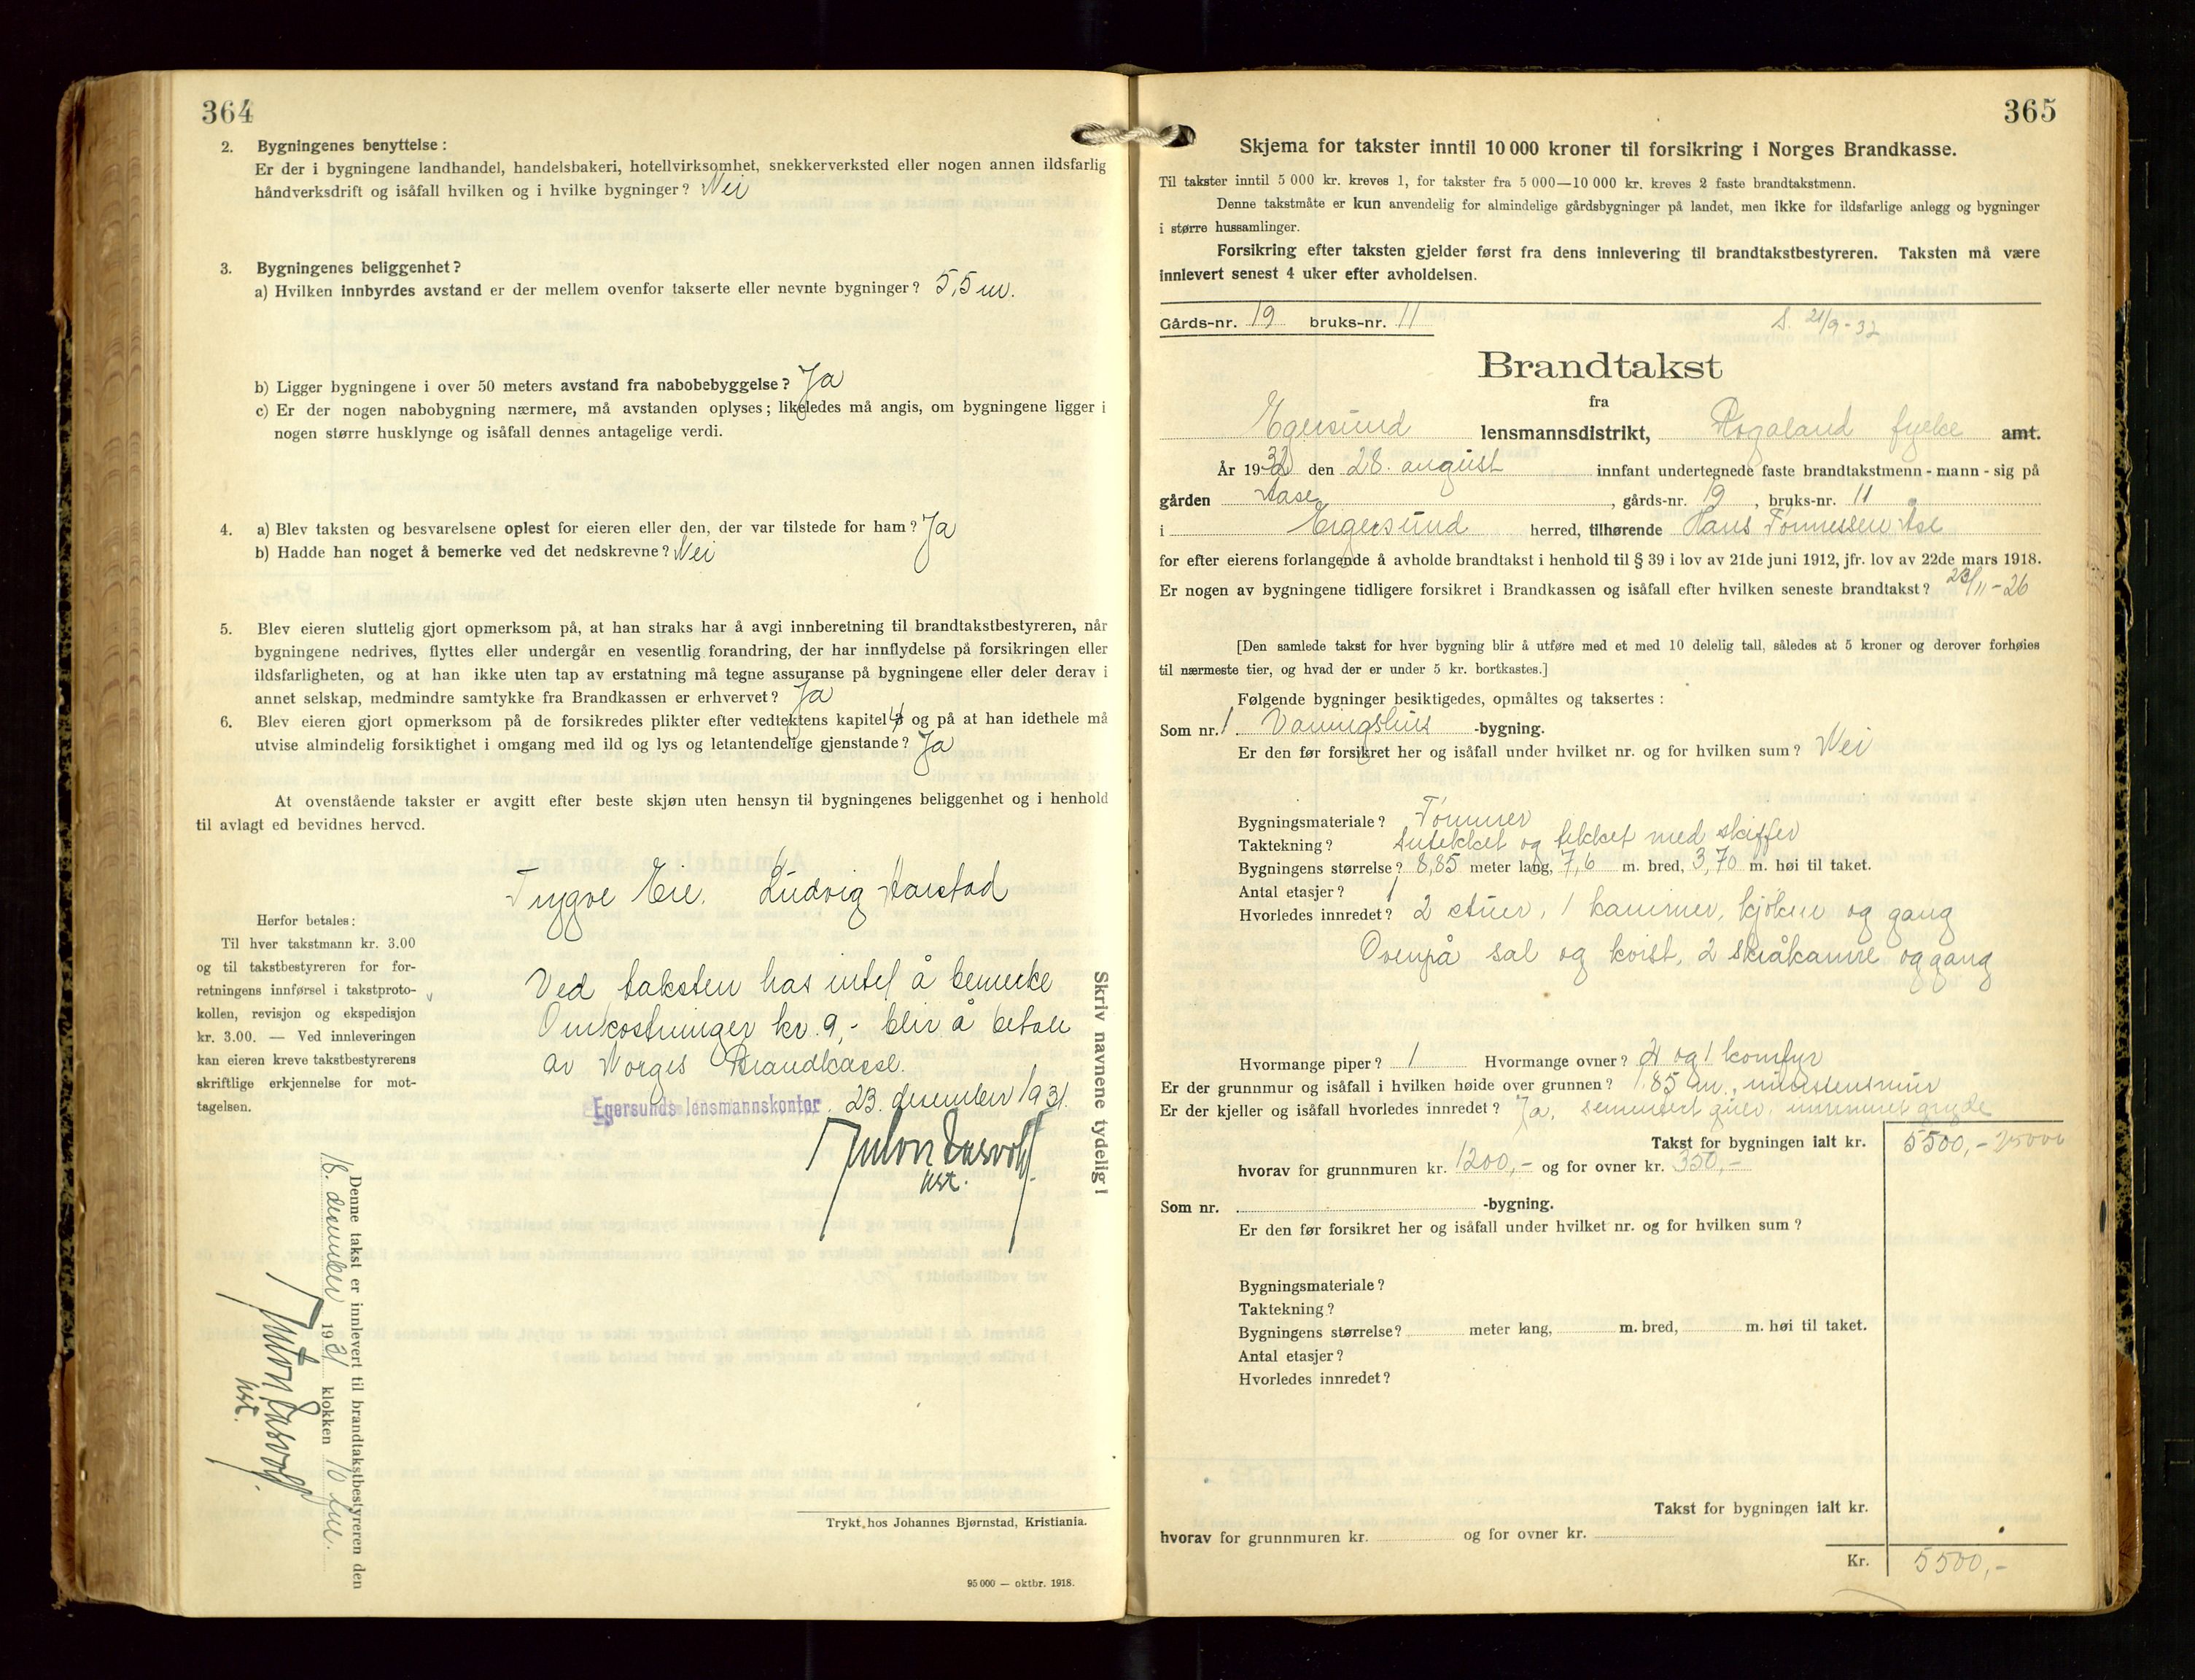 364
2. Bygningenes benyttelse:
Er der i bygningene landhandel, handelsbakeri, hotellvirksomhet, snekkerverksted eller nogen annen ildsfarlig
håndverksdrift og isåfall hvilken og i hvilke bygninger? Nei
3. Bygningenes beliggenhet?
a) Hvilken innbyrdes avstand er der mellem ovenfor takserte eller nevnte bygninger? 5,5 m.
b) Ligger bygningene i over 50 meters avstand fra nabobebyggelse? Ja
c) Er der nogen nabobygning nærmere, må avstanden oplyses; likeledes må angis, om bygningene ligger i
nogen større husklynge og isåfall dennes antagelige verdi.
4. a) Blev taksten og besvarelsene oplest for eieren eller den, der var tilstede for ham? Ja
b) Hadde han noget å bemerke ved det nedskrevne? Nei
5. Blev eieren sluttelig gjort opmerksom på, at han straks har å avgi innberetning til brandtakstbestyreren, når
bygningene nedrives, flyttes eller undergår en vesentlig forandring, der har innflydelse på forsikringen eller
ildsfarligheten, og at han ikke uten tap av erstatning må tegne assuranse på bygningene eller deler derav i
annet selskap, medmindre samtykke fra Brandkassen er erhvervet? Ja
6. Blev eieren gjort opmerksom på de forsikredes plikter efter vedtektens kapitel 4 og på at han idethele må
utvise almindelig forsiktighet i omgang med ild og lys og letantendelige gjenstande? Ja
At ovenstående takster er avgitt efter beste skjøn uten hensyn til bygningenes beliggenhet og i henhold
til avlagt ed bevidnes herved.
Trygve Eie. Ludvig Aarstad
Herfor betales:
Til hver takstmann kr. 3.00
og til takstbestyreren for for-
retningens innførsel i takstproto-
kollen, revisjon og ekspedisjon
kr. 3.00. — Ved innleveringen
kan eieren kreve takstbestyrerens
skriftlige erkjennelse for mot-
tagelsen.
Ved taksten has intet å bemerke
Omkostninger kr. 9,- blir å betale
av Norges Brandkasse.
Egersunds lensmannskontor. 23. desember 1931.
Skriv navnene tydelig!
Denne takst er innlevert til brandtakstbestyreren den
18. desember 1931 klokken 10 fm.
Trykt hos Johannes Bjørnstad, Kristiania.
95 000 — oktbr. 1918.
365
Skjema for takster inntil 10 000 kroner til forsikring i Norges Brandkasse.
Til takster inntil 5 000 kr. kreves 1, for takster fra 5 000—10 000 kr. kreves 2 faste brandtakstmenn.
Denne takstmåte er kun anvendelig for almindelige gårdsbygninger på landet, men ikke for ildsfarlige anlegg og bygninger
i større hussamlinger.
Forsikring efter taksten gjelder først fra dens innlevering til brandtakstbestyreren. Taksten må være
innlevert senest 4 uker efter avholdelsen.
Gårds-nr. 19 bruks-nr. 11
S. 21/9-32
Brandtakst
fra
Egersund lensmannsdistrikt, Rogaland fylke amt.
År 1932 den 28. august innfant undertegnede faste brandtakstmenn - mann - sig på
gården Aase, gårds-nr. 19, bruks-nr. 11
i Eigersund herred, tilhørende Hans Tønnessen Ase
for efter eierens forlangende å avholde brandtakst i henhold til § 39 i lov av 21de juni 1912, jfr. lov av 22de mars 1918.
Er nogen av bygningene tidligere forsikret i Brandkassen og isåfall efter hvilken seneste brandtakst? 23/11-26
[Den samlede takst for hver bygning blir å utføre med et med 10 delelig tall, således at 5 kroner og derover forhøies
til nærmeste tier, og hvad der er under 5 kr. bortkastes.]
Følgende bygninger besiktigedes, opmåltes og taksertes:
Som nr. 1 Vaningshus -bygning.
Er den før forsikret her og isåfall under hvilket nr. og for hvilken sum? Nei
Bygningsmateriale? Tømmer
Taktekning? Sutekket og tekket med skiffer
Bygningens størrelse? 8,85 meter lang, 7,6 m. bred, 3,70 m. høi til taket.
Antal etasjer? 1
Hvorledes innredet? 2 stuer, 1 kammer, kjøken og gang
Ovenpå sal og kvist, 2 skråkamre og gang
Hvormange piper? 1 Hvormange ovner? 4 og 1 komfyr
Er der grunnmur og isåfall i hvilken høide over grunnen? 1,85 m.
Er der kjeller og isåfall hvorledes innredet? Ja,
Takst for bygningen ialt kr. 5500,-
hvorav for grunnmuren kr. 1200,- og for ovner kr. 350,-
Som nr. -bygning.
Er den før forsikret her og isåfall under hvilket nr. og for hvilken sum?
Bygningsmateriale?
Taktekning?
Bygningens størrelse? meter lang, m. bred, m. høi til taket.
Antal etasjer?
Hvorledes innredet?
Takst for bygningen ialt kr.
hvorav for grunnmuren kr. og for ovner kr.
Kr. 5500,-